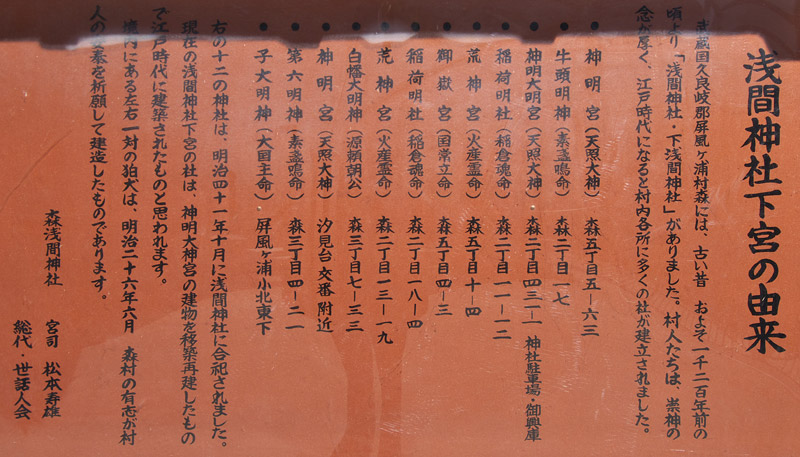 浅間神社下宮の由来
武蔵国久良岐郡屏風ヶ浦村森には、古い昔 およそ一千二百年前の
頃より「浅間神社・下浅間神社」がありました。村人たちは、崇神の
念が厚く、江戸時代になると村内各所に多くの社が建立されました。
● 神明宮（天照大神） 森五丁目五－六三
● 牛頭明神（素盞鳴命） 森二丁目一七
● 神明大明宮（天照大神） 森二丁目四三－一 神社駐車場・御興庫
● 稲荷明社（稲倉魂命） 森二丁目一一－一二
● 荒神宮（火産霊命） 森五丁目十－四
● 御嶽宮（国常立命） 森五丁目四－三
● 稲荷明社（稲倉魂命） 森二丁目一八－四
● 荒神宮（火産霊命） 森二丁目一三－一九
● 白幡大明神（源頼朝公） 森三丁目七－三三
● 神明宮（天照大神） 汐見台 交番 附近
● 第六明神（素盞鳴命） 森三丁目四－二一
● 子大明神（大国主命） 屏風ヶ浦小北東下
右の十二の神社は、明治四十一年十月に浅間神社に合祀されました。
現在の浅間神社下宮の社は、神明大神宮の建物を移築再建したもの
で江戸時代に建築されたものと思われます。
境内にある左右一対の狛犬は、明治二十六年六月 森村の有志が村
人の安泰を祈願して建造したものであります。
森浅間神社 宮司 松本寿雄
総代・世話人会